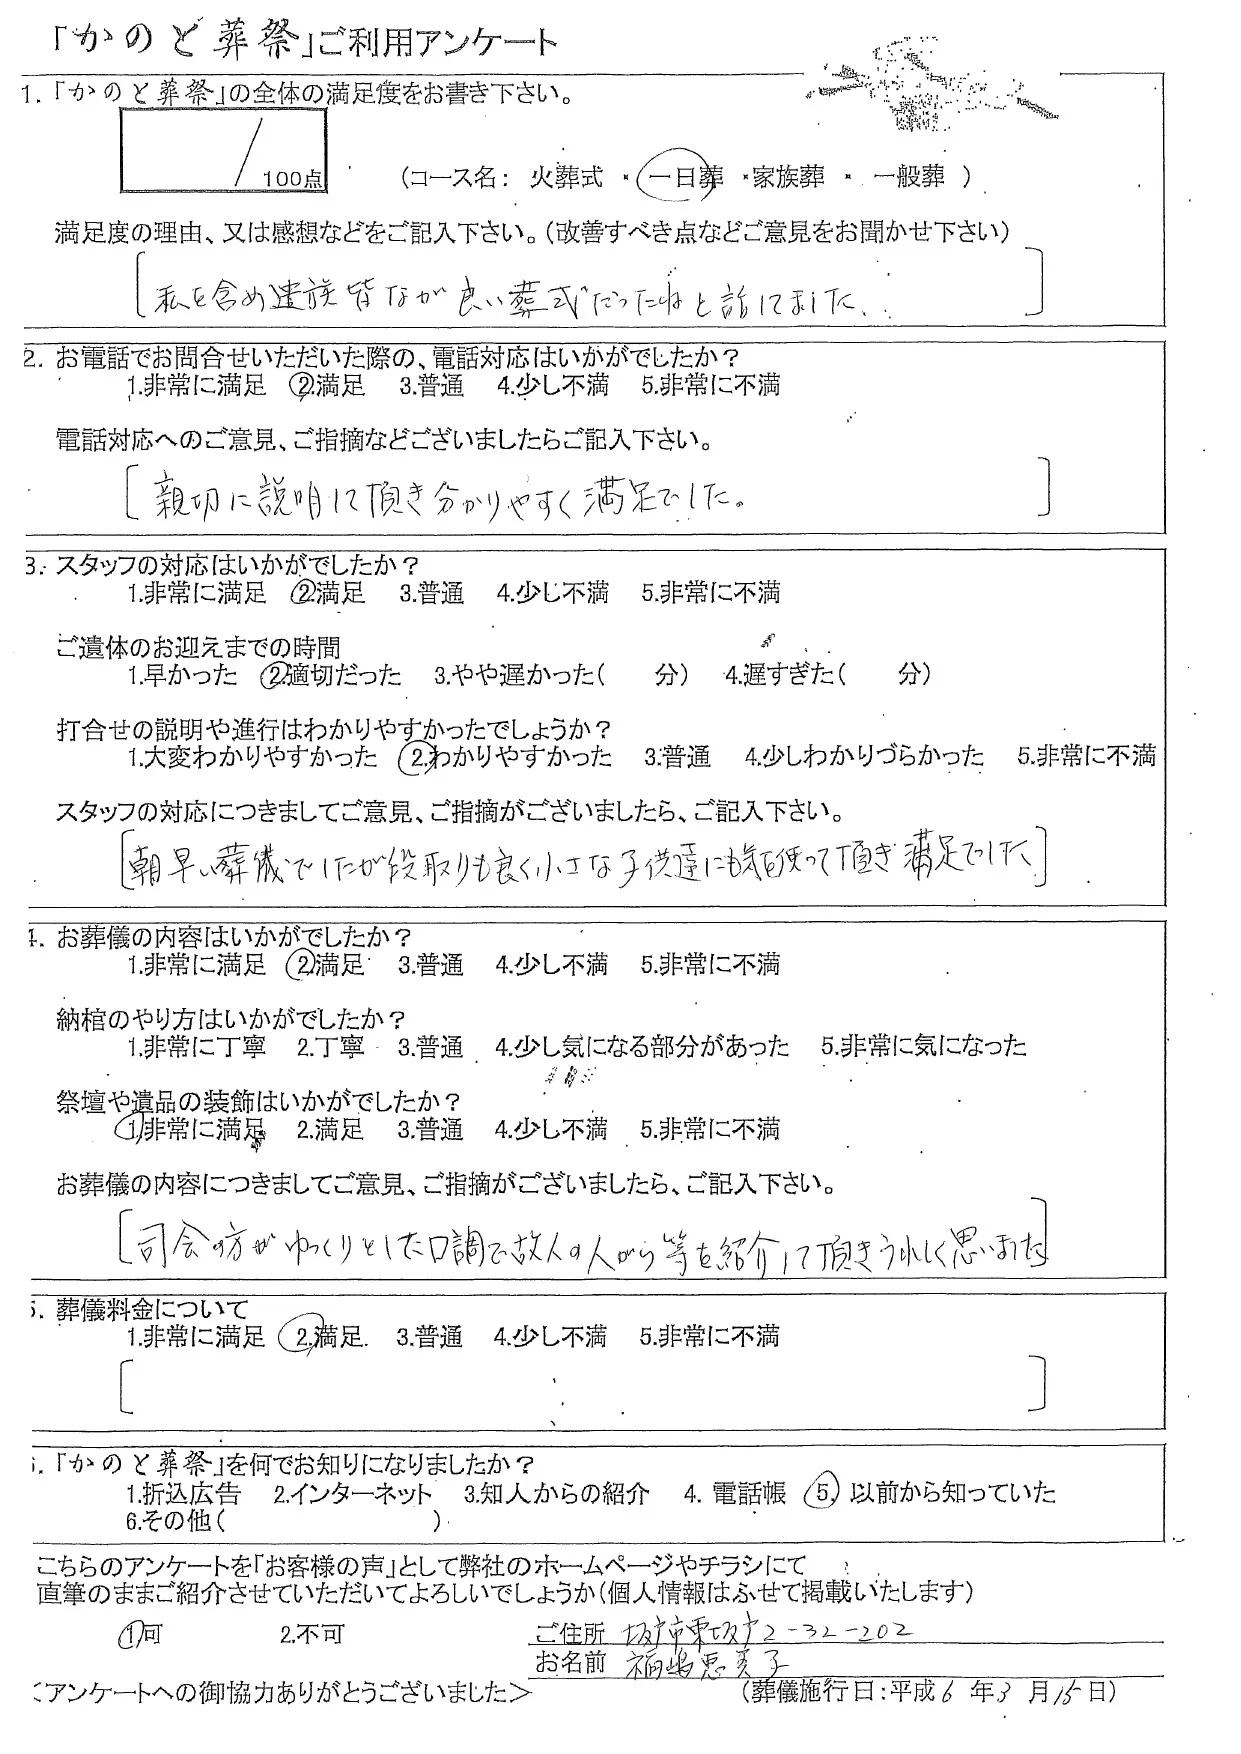 「かのど葬祭」ご利用アンケート
1.「かのど葬祭」の全体の満足度をお書き下さい。
/100点 (コース名: 火葬式 ・ 一日葬 ・家族葬 ・ 一般葬 )
満足度の理由、又は感想などをご記入下さい。(改善すべき点などご意見をお聞かせ下さい)
[私を含め遺族皆なが良い葬式だったねと話してました.]
2. お電話でお問合せいただいた際の、電話対応はいかがでしたか?
1.非常に満足 2.満足 3.普通 4.少し不満 5.非常に不満
電話対応へのご意見、ご指摘などございましたらご記入下さい。
[親切に説明して頂き分かりやすく満足でした。]
3. スタッフの対応はいかがでしたか?
1.非常に満足 2.満足 3.普通 4.少し不満 5.非常に不満
ご遺体のお迎えまでの時間
1.早かった 2.適切だった 3.やや遅かった( 分) 4.遅すぎた( 分)
打合せの説明や進行はわかりやすかったでしょうか?
1.大変わかりやすかった 2.わかりやすかった 3.普通 4.少しわかりづらかった 5.非常に不満
スタッフの対応につきましてご意見、ご指摘がございましたら、ご記入下さい。
[朝早い葬儀でしたが段取りも良く小さな子供達にも気を使って頂き満足でした]
4. お葬儀の内容はいかがでしたか?
1.非常に満足 2.満足 3.普通 4.少し不満 5.非常に不満
納棺のやり方はいかがでしたか?
1.非常に丁寧 2.丁寧 3.普通 4.少し気になる部分があった 5.非常に気になった
祭壇や遺品の装飾はいかがでしたか?
1.非常に満足 2.満足 3.普通 4.少し不満 5.非常に不満
お葬儀の内容につきましてご意見、ご指摘がございましたら、ご記入下さい。
[司会の方がゆっくりとした口調で故人の人がら等を紹介して頂きうれしく思いました]
5. 葬儀料金について
1.非常に満足 2.満足 3.普通 4.少し不満 5.非常に不満
6.「かのど葬祭」を何でお知りになりましたか?
1.折込広告 2.インターネット 3.知人からの紹介 4. 電話帳 5. 以前から知っていた
6.その他( )
こちらのアンケートを「お客様の声」として弊社のホームページやチラシにて
直筆のままご紹介させていただいてよろしいでしょうか(個人情報はふせて掲載いたします)
1.可 2.不可 ご住所 坂戸市東坂戸2-32-202
お名前 福嶋恵美子
<アンケートへの御協力ありがとうございました> (葬儀施行日:平成6 年3 月15日)